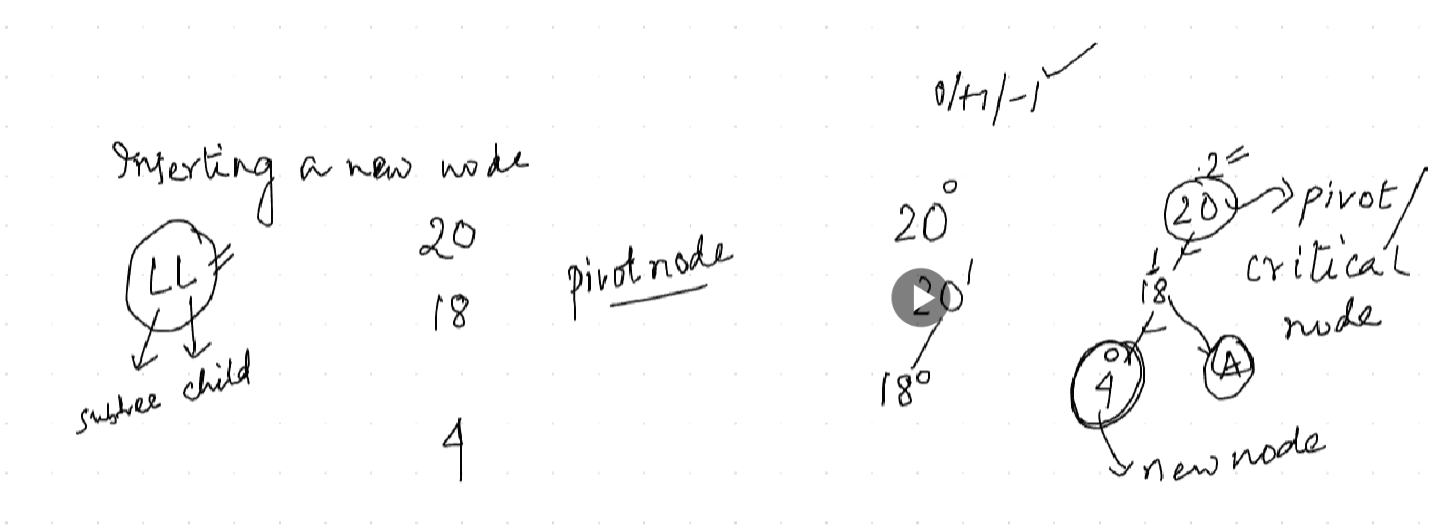 0/+1/-1
Inserting a new node
LL
subtree child
20
18
4
pivot node
20 0
20 1
18 0
2
20
pivot/
critical
node
1
18
0
4
A
new node